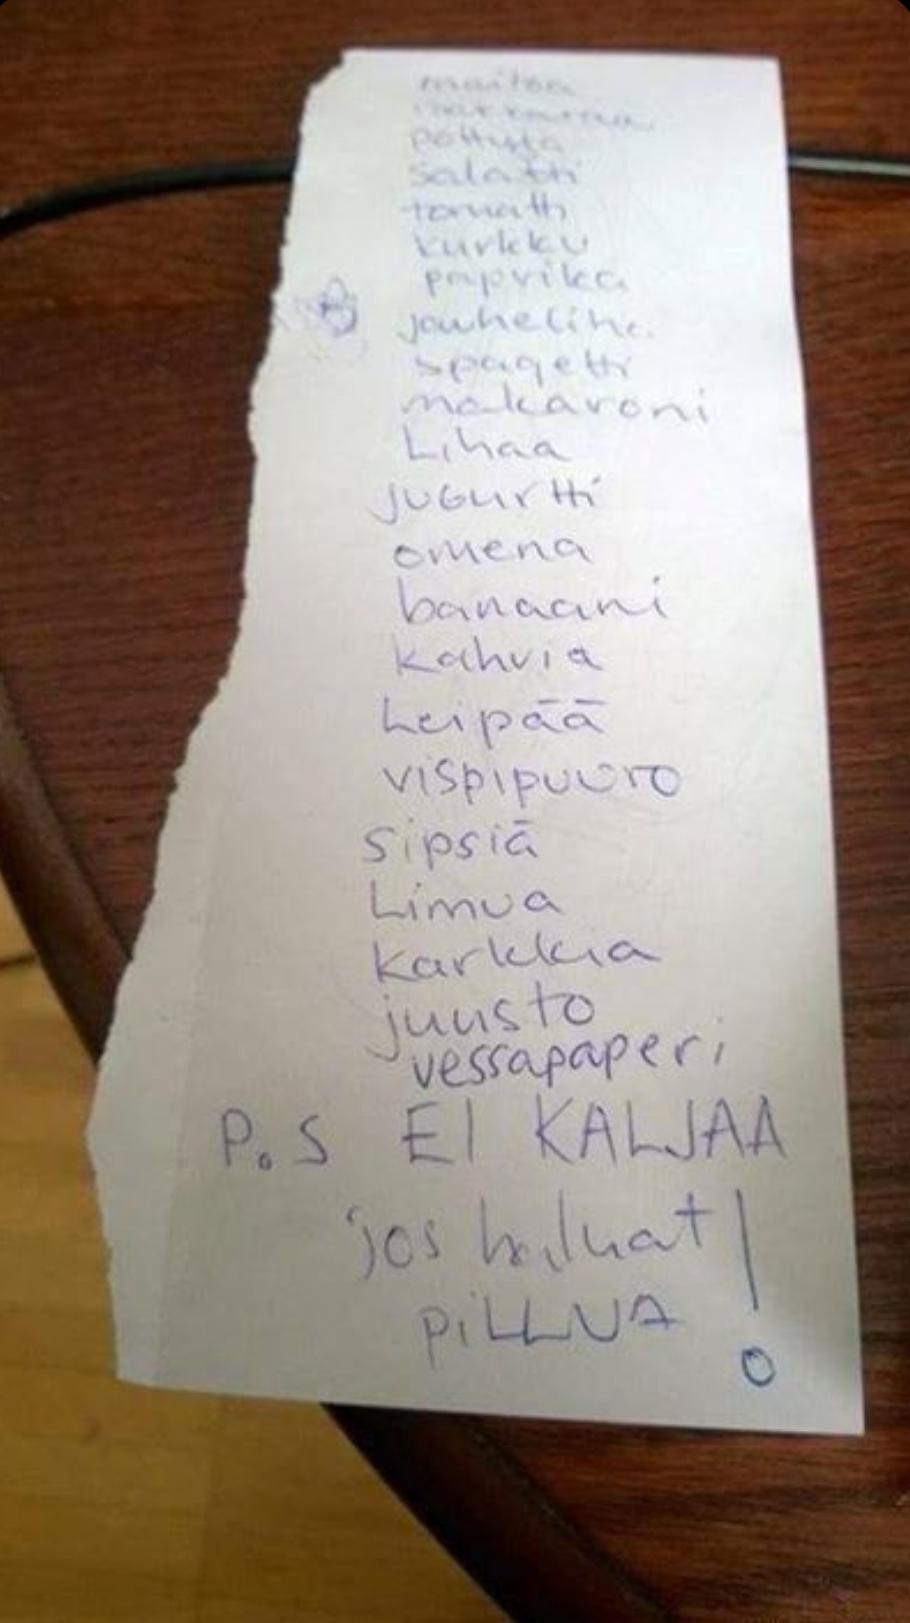 maitoa
pottuja
salatti
tomatti
kurkku
paprika
jauheliha
spagetti
makaroni
Lihaa
juGurtti
omena
banaani
kahvia
Leipää
vispipuuro
sipsiä
Limua
karkkia
juusto
vessapaperi
P.S EI KALJAA
jos haluat !
PiLLUA